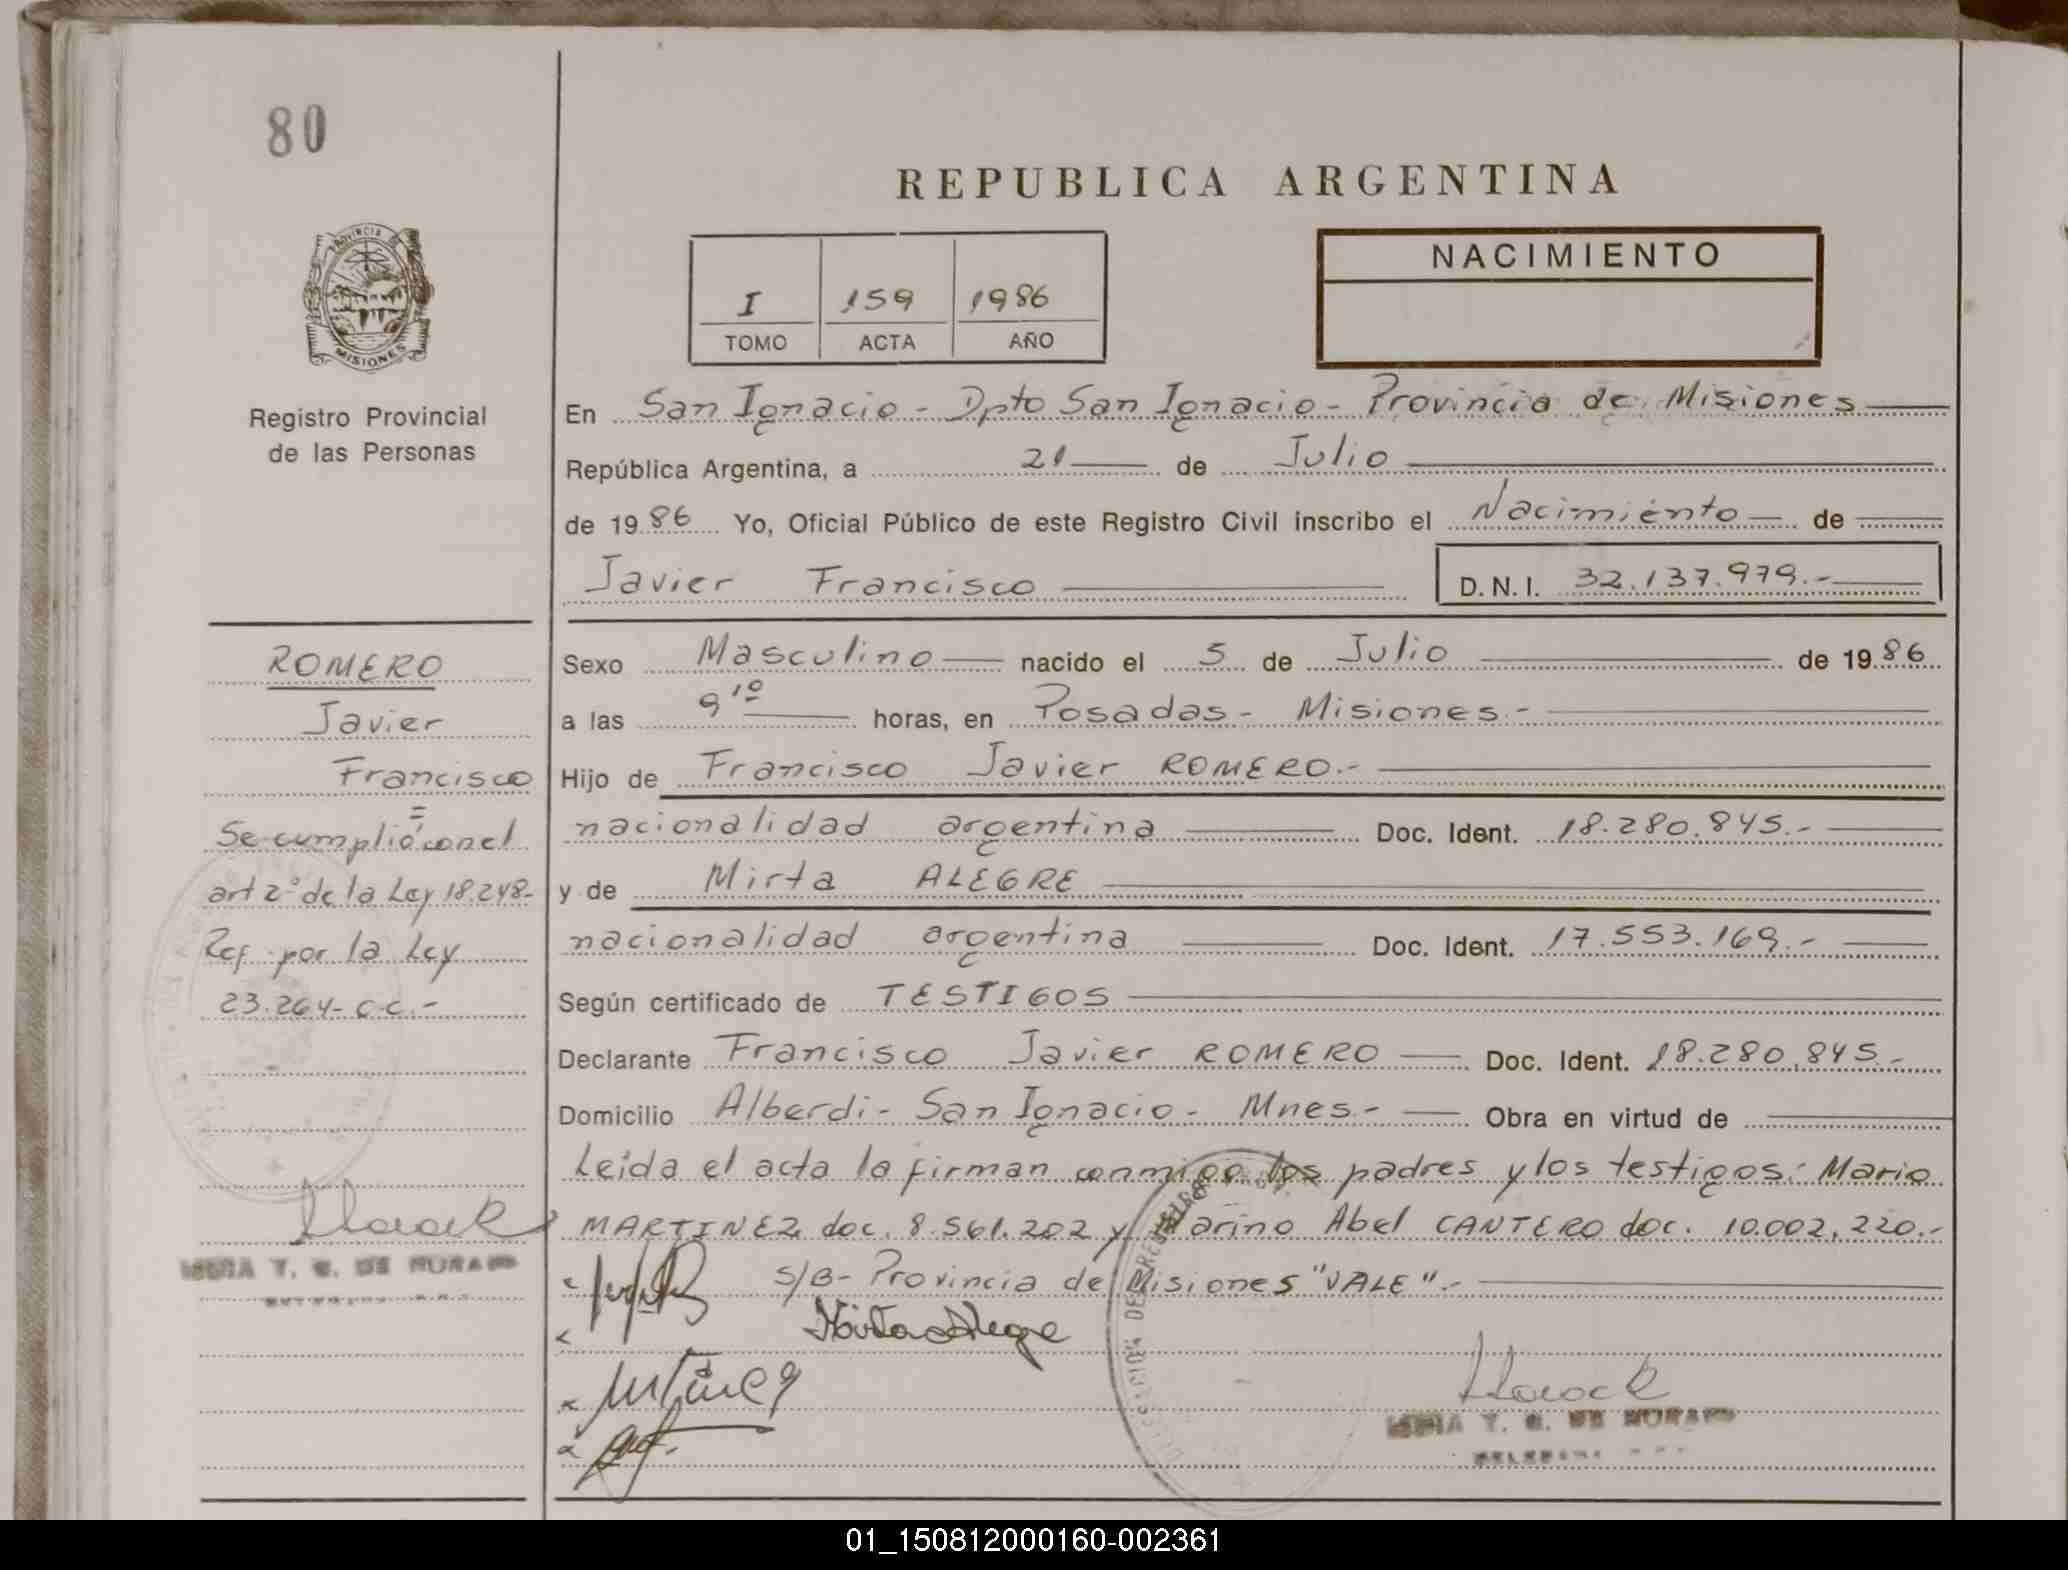 80
REPUBLICA ARGENTINA
PROVINCIA DE
MISIONES
Registro Provincial
de las Personas
I 159 1986
TOMO ACTA AÑO
NACIMIENTO
En San Ignacio - Dpto San Ignacio - Provincia de Misiones
República Argentina, a 21 de Julio
de 1986 Yo, Oficial Público de este Registro Civil inscribo el Nacimiento de
Javier Francisco D.N.I. 32.137.979.-
ROMERO
Javier
Francisco
=
Se cumplió con el
art 2° de la Ley 18.248-
Ref. por la Ley
23.264- C.C.-
Sexo Masculino nacido el 5 de Julio de 1986
a las 9 10 horas, en Posadas - Misiones.-
Hijo de Francisco Javier ROMERO.-
nacionalidad argentina Doc. Ident. 18.280.845.-
y de Mirta ALEGRE
nacionalidad argentina Doc. Ident. 17.553.169.-
Según certificado de TESTIGOS
Declarante Francisco Javier ROMERO Doc. Ident. 18.280.845.-
Domicilio Alberdi - San Ignacio - Mnes.- Obra en virtud de
Leida el acta la firman conmigo los padres y los testigos: Mario
MARTINEZ doc. 8.561.202 y Marino Abel CANTERO doc. 10.002.220.-
S/B- Provincia de Misiones "VALE".-
Mirta Alegre
01_150812000160-002361